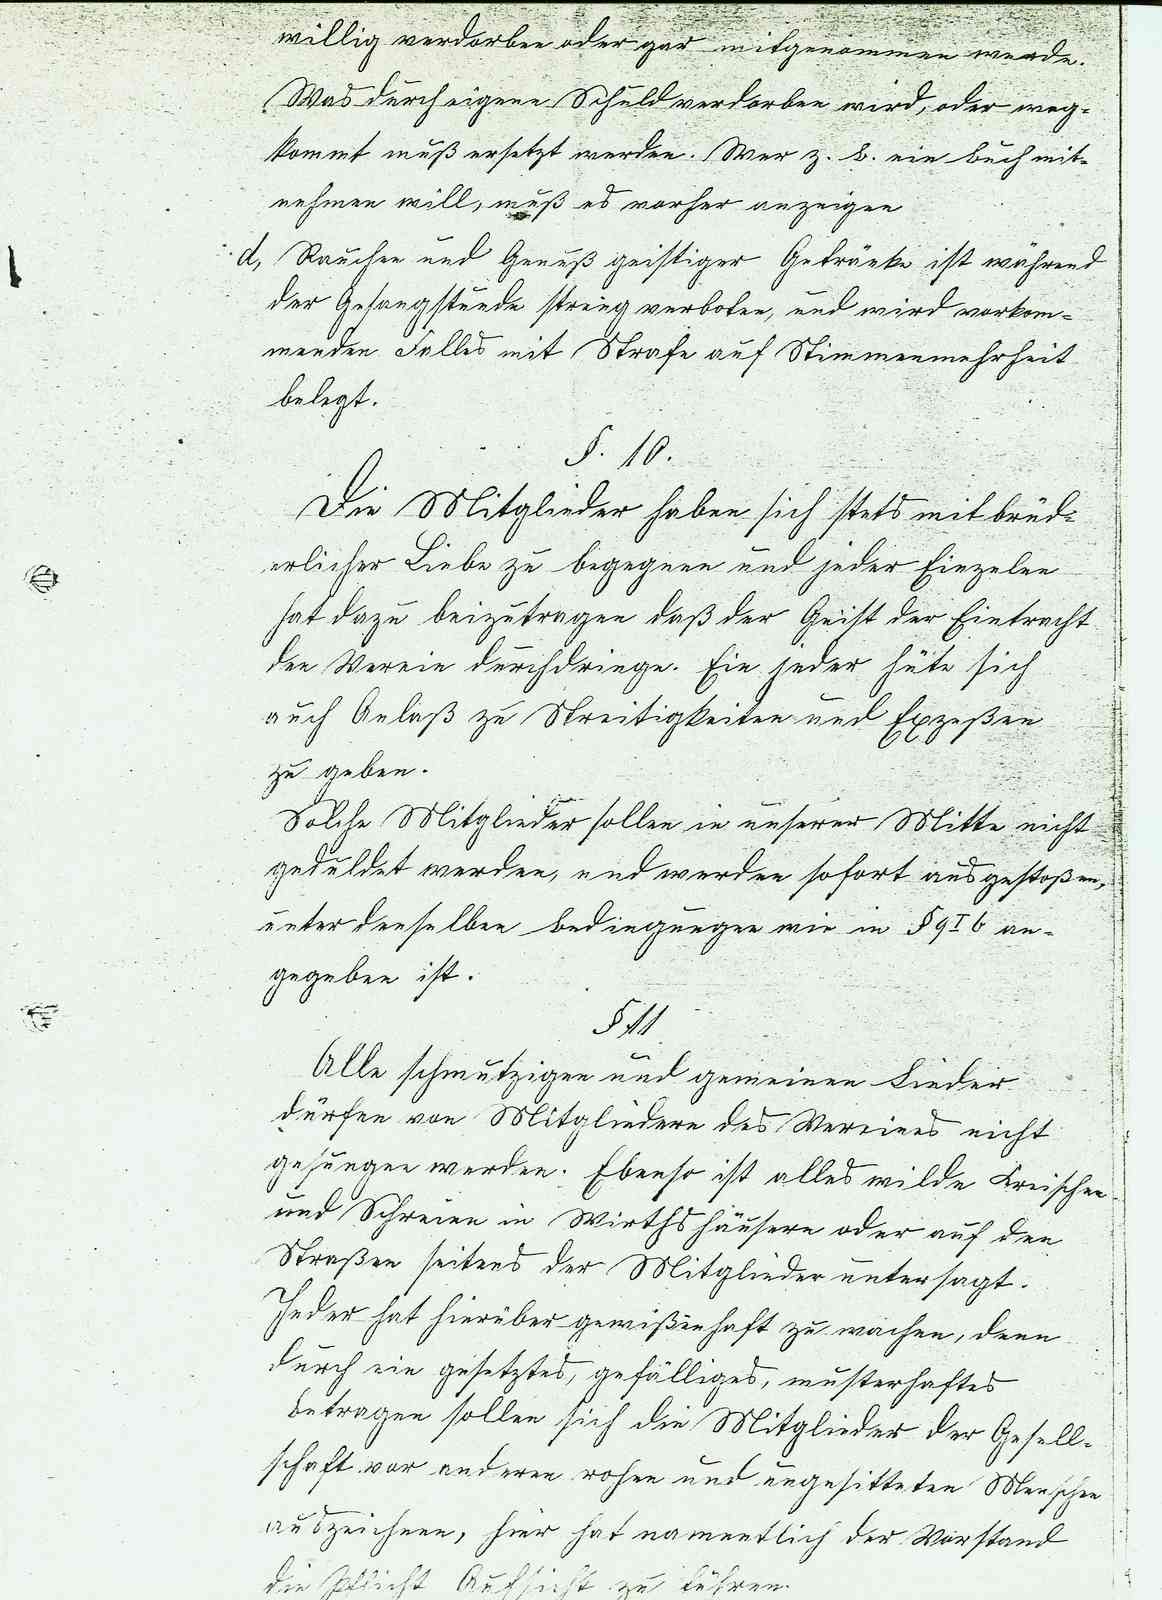 willig verdorben oder gar mitgenommen werde.
Was durch eigene Schuld verdorben wird, oder weg-
kommt muß ersetzt werden. Wer z. b. ein buch mit-
nehmen will, muß es vorher anzeigen
d, Rauchen und Genuß geistiger Getränke ist während
der Gesangstunde streng verboten, und wird vorkom-
menden Falles mit Strafe auf Stimmenmehrheit
belegt.
§. 10.
Die Mitglieder haben sich stets mit brüd-
erlicher Liebe zu begegnen und jeder Einzelen
hat dazu beizutragen daß der Geist der Eintracht
den Verein durchdringe. Ein jeder hüte sich
auch Anlaß zu Streitigkeiten und Exzeßen
zu geben.
Solche Mitglieder sollen in unserer Mitte nicht
geduldet werden, und werden sofort ausgestoßen,
unter denselben bedingungen wie in § 9 I b an-
gegeben ist.
§ 11
Alle schmutzigen und gemeinen Lieder
dürfen von Mitgliedern des Vereines nicht
gesungen werden. Ebenso ist alles wilde Kreischen
und Schreien in Wirthshäusern oder auf den
Straßen seitens der Mitglieder untersagt.
Jeder hat hierüber gewißenhaft zu wachen, denn
durch ein gesetztes, gefälliges, musterhaftes
betragen sollen sich die Mitglieder der Gesell-
schaft vor anderen rohen und ungesitteten Menschen
auszeichnen, hier hat namentlich der Vorstand
die Pflicht Aufsicht zu führen.